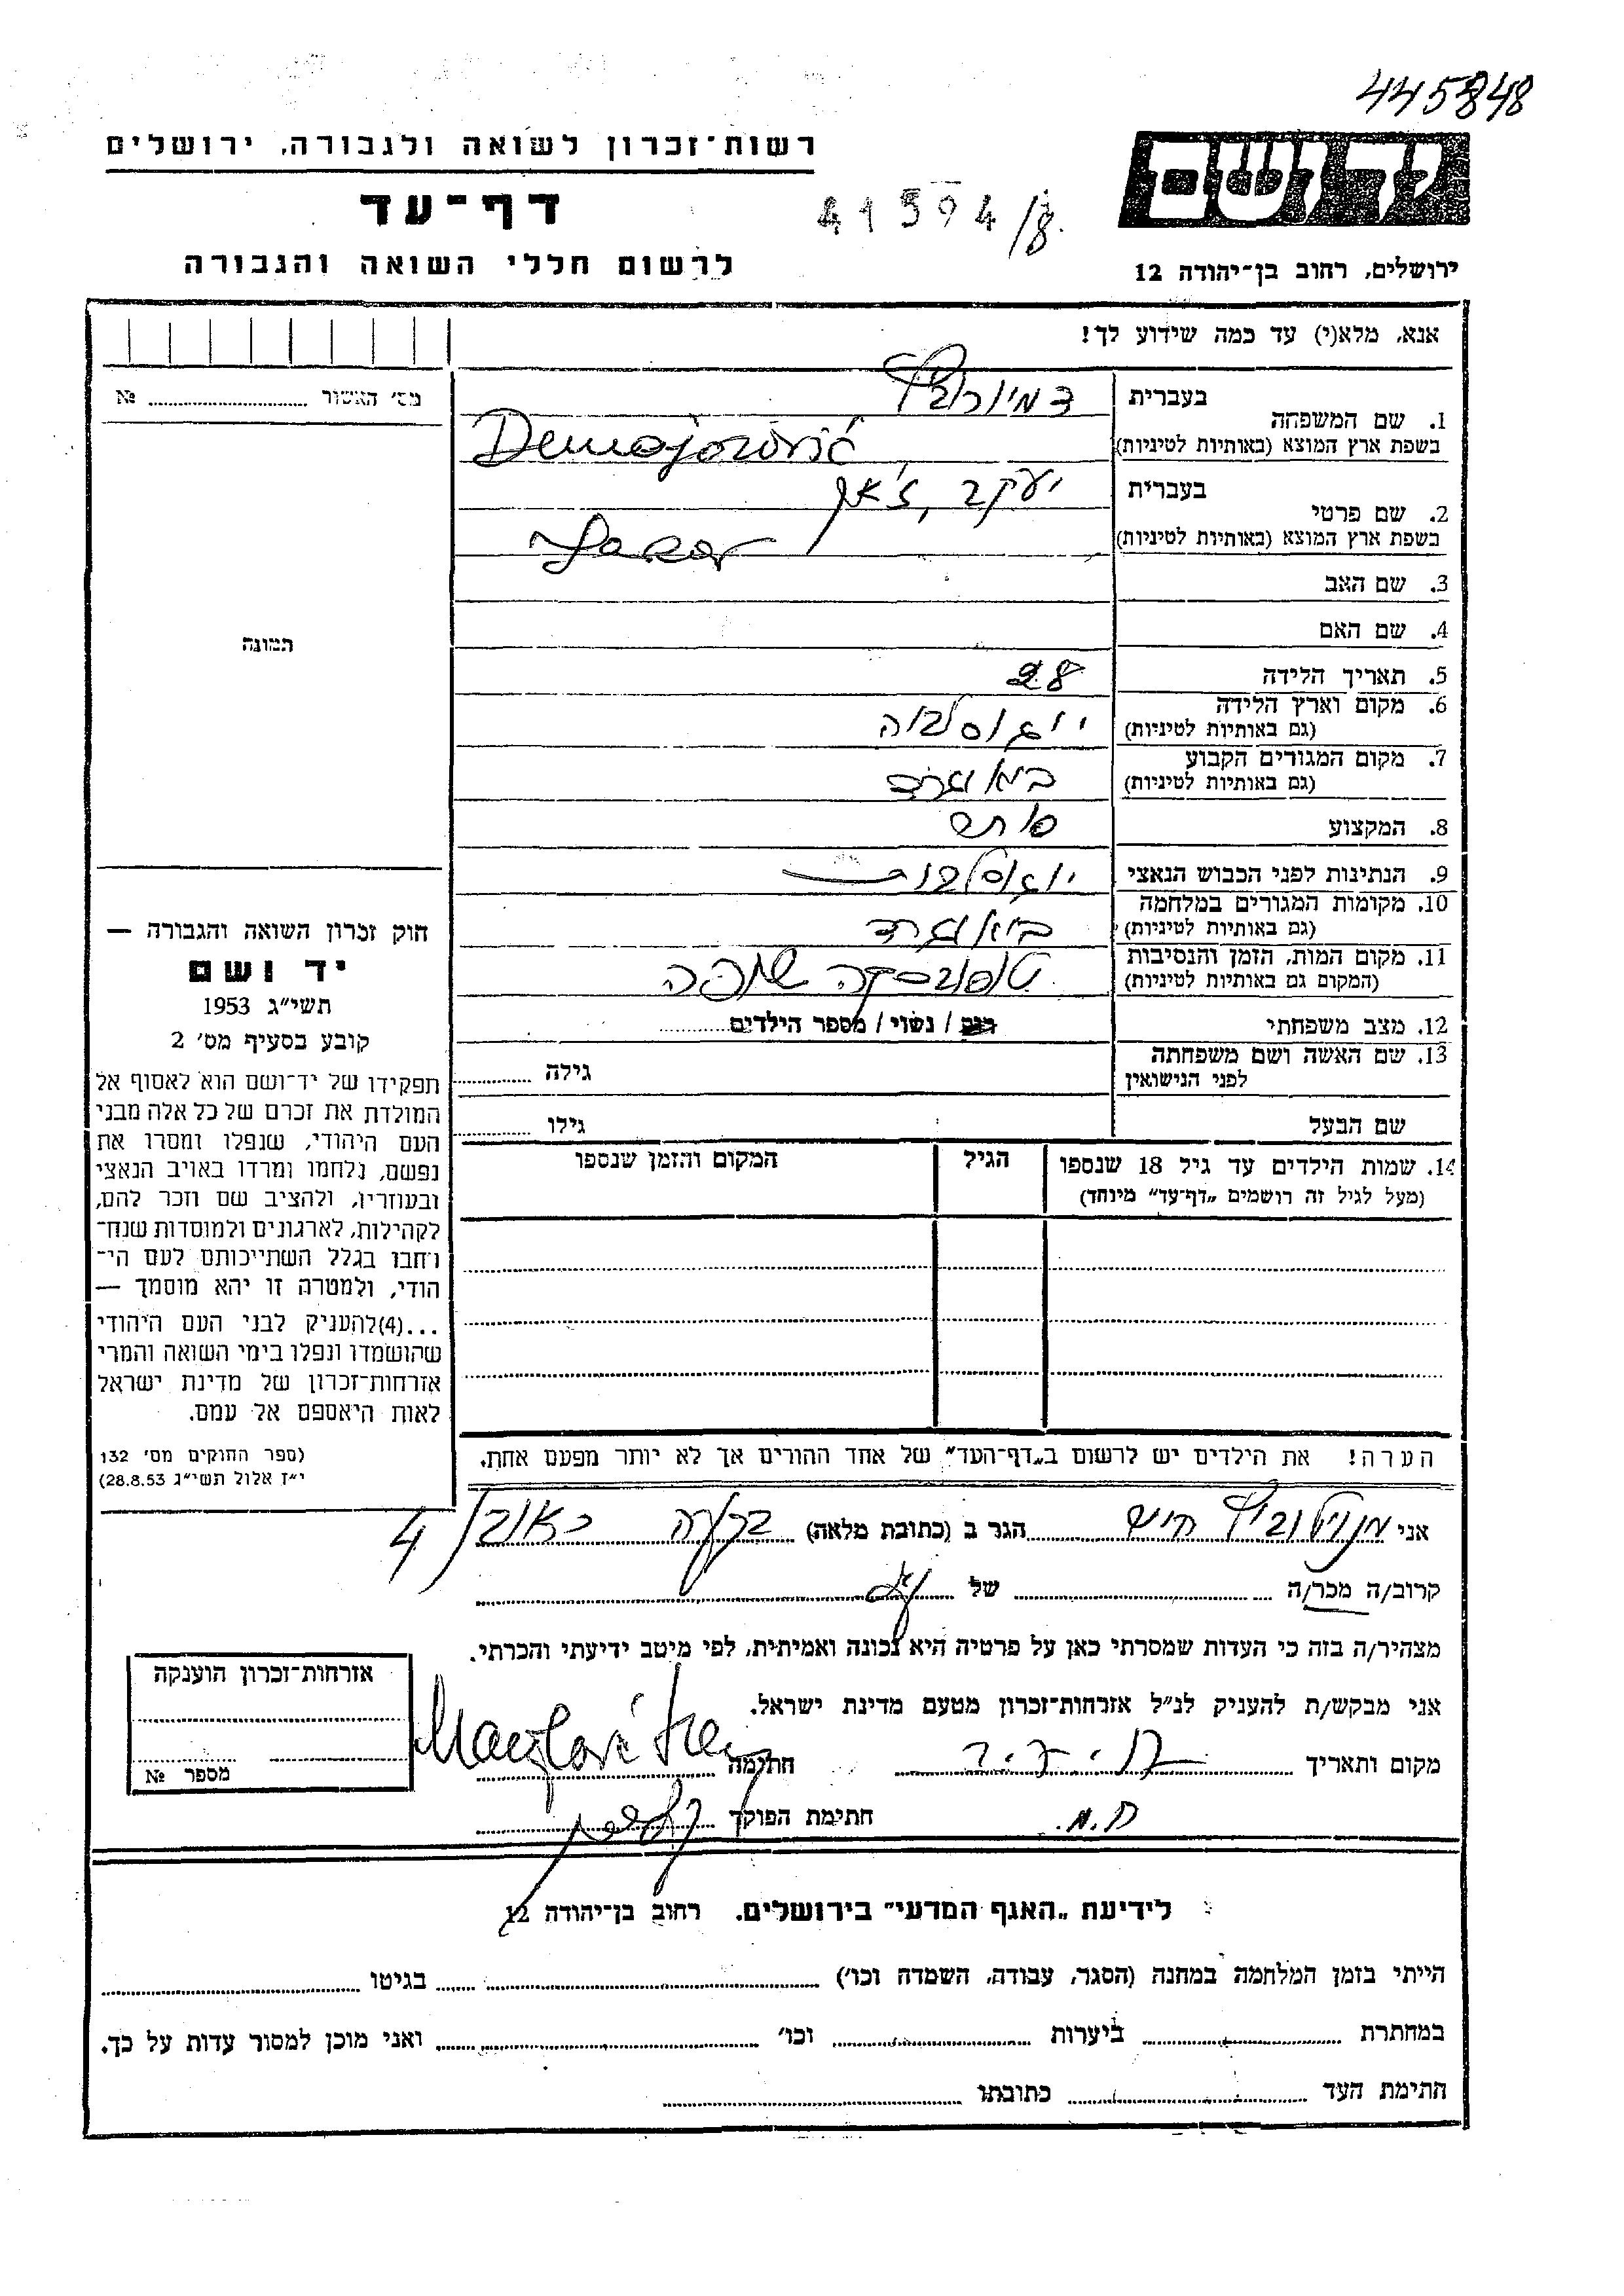 445848
רשות־זכרון לשואה ולגבורה, ירושלים
יד ושם
דף־עד
41594/8
לרשום חללי השואה והגבורה
ירושלים, רחוב בן־יהודה 12
אנא, מלא(י) עד כמה שידוע לך!
מס׳ האשור № 
תמונה
1. שם המשפחה
בעברית
בשפת ארץ המוצא (באותיות לטיניות)
Demajorović
2. שם פרטי
בעברית יעקב, ז׳אק
בשפת ארץ המוצא (באותיות לטיניות)
3. שם האב
4. שם האם
5. תאריך הלידה 28
6. מקום וארץ הלידה
(גם באותיות לטיניות)
יוגוסלביה
7. מקום המגורים הקבוע
(גם באותיות לטיניות)
8. המקצוע סוחר
9. הנתינות לפני הכבוש הנאצי יוגוסלבית
10. מקומות המגורים במלחמה
(גם באותיות לטיניות)
11. מקום המות, הזמן והנסיבות
(המקום גם באותיות לטיניות)
12. מצב משפחתי רווק / נשוי / מספר הילדים
13. שם האשה ושם משפחתה
לפני הנישואין
גילה
שם הבעל גילו
14. שמות הילדים עד גיל 18 שנספו הגיל המקום והזמן שנספו
(מעל לגיל זה רושמים „דף־עד״ מיוחד)
הערה! את הילדים יש לרשום ב„דף־העד״ של אחד ההורים אך לא יותר מפעם אחת.
חוק זכרון השואה והגבורה —
יד ושם
תשי״ג 1953
קובע בסעיף מס׳ 2
תפקידו של יד־ושם הוא לאסוף אל
המולדת את זכרם של כל אלה מבני
העם היהודי, שנפלו ומסרו את
נפשם, נלחמו ומרדו באויב הנאצי
ובעוזריו, ולהציב שם וזכר להם,
לקהילות, לארגונים ולמוסדות שנח־
רבו בגלל השתייכותם לעם הי־
הודי, ולמטרה זו יהא מוסמך —
...(4)להעניק לבני העם היהודי
שהושמדו ונפלו בימי השואה והמרי
אזרחות־זכרון של מדינת ישראל
לאות היאספם אל עמם.
(ספר החוקים מס׳ 132
י״ז אלול תשי״ג 28.8.53)
אני הגר ב (כתובת מלאה) 4
קרוב/ה מכר/ה של
מצהיר/ה בזה כי העדות שמסרתי כאן על פרטיה היא נכונה ואמיתית, לפי מיטב ידיעתי והכרתי.
אני מבקש/ת להעניק לנ״ל אזרחות־זכרון מטעם מדינת ישראל.
מקום ותאריך חתימה
חתימת הפוקד
אזרחות־זכרון הוענקה
מספר №
לידיעת „האגף המדעי״ בירושלים. רחוב בן־יהודה 12
הייתי בזמן המלחמה במחנה (הסגר, עבודה, השמדה וכו׳) בגיטו
במחתרת ביערות וכו׳ ואני מוכן למסור עדות על כך.
חתימת העד כתובתו